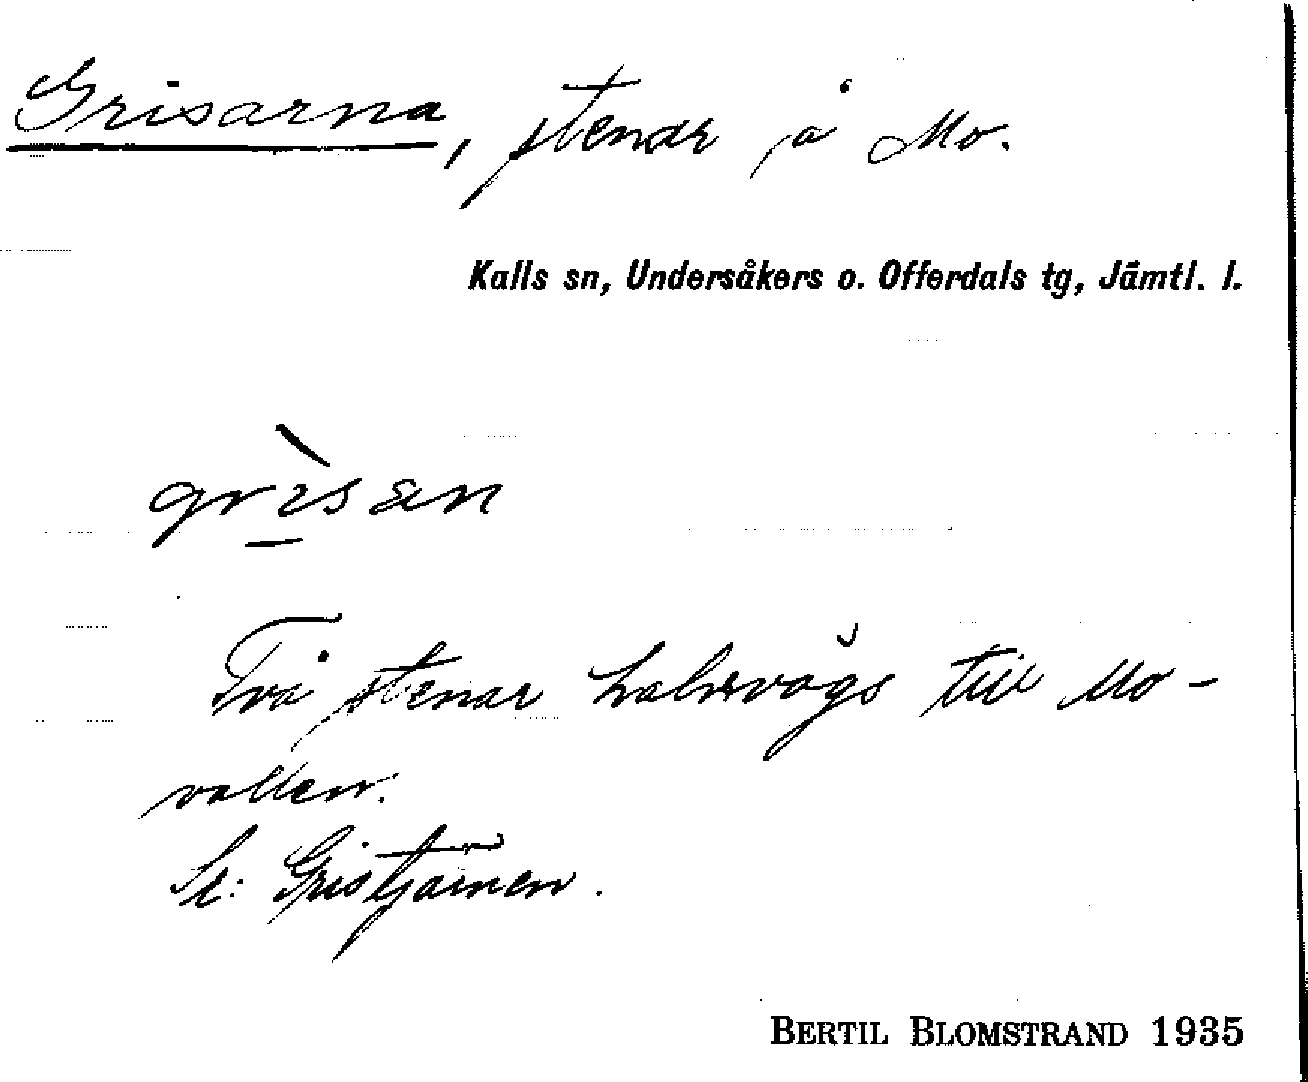 Grisarna, stenar å Mo.
Kalls sn, Undersåkers o. Offerdals tg, Jämtl. l.
grìsan
Två stenar halvvägs till Mo-
vallen.
Se: Gristjärnen.
BERTIL BLOMSTRAND 1935